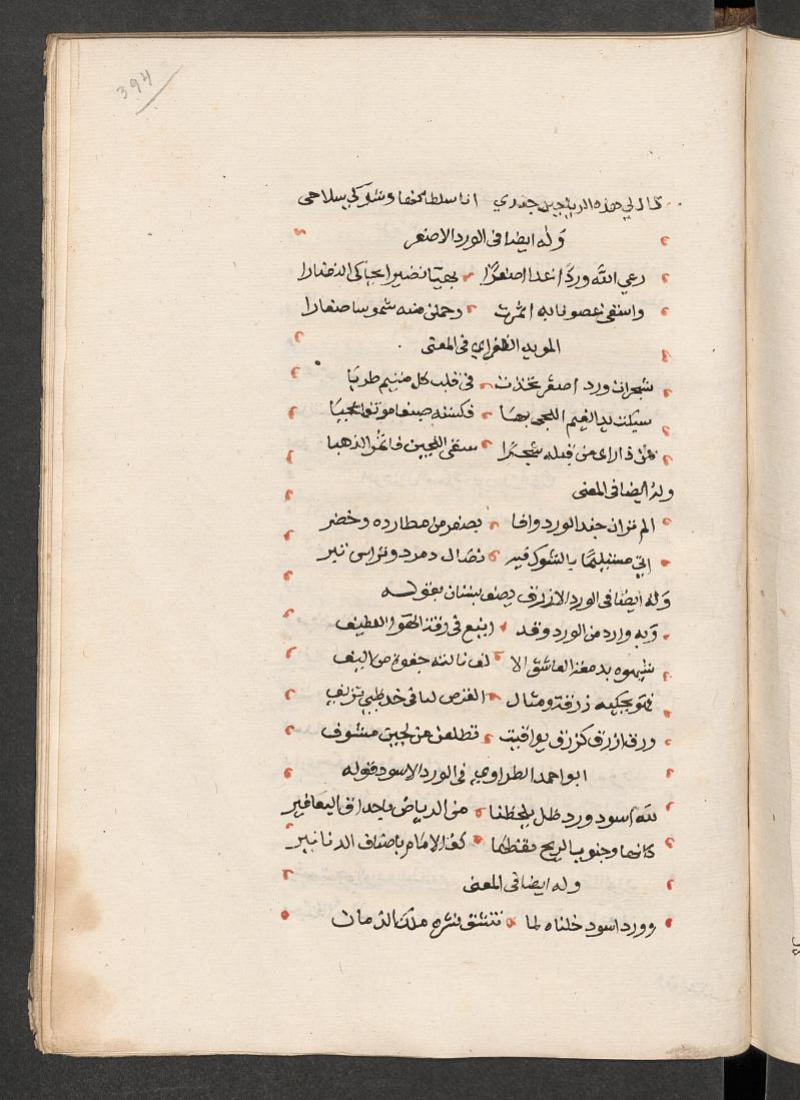 394
قال لي هذه الرياحين جندي انا سلطانها وشوكي سلاحى
وله ايضا فى الورد الاصفر
رعي الله وردًا غدا اصفرًا بهيا نضيرا يحاكى النضارا
واسقى غصونا به اثمرت وحملن منه شموسا صغارا
المويد الطغراي فى المعنى
شجرات ورد اصفر فى قلب كل متيم طربا
سبكت يد الغيم اللجى بها فكسته صبغا مونقا عجبا
من ذا راى من قبله شجرًا سقى اللجين فاثمر الذهبا
وله ايضا فى المعنى
الم تر ان جند الورد وافا بصفر من مطارده وخضر
اتى مستلئما بالشوك فيه نصال زمرد وتراس تبر
وله ايضا فى الورد الازرق بقوله
وبه وارد من الورد وقد اينع فى رقة الهوا اللطيف
شبهوه بدمعة العاشق
زرقة ومثال القرص لما فى خد ظبي تريف
ورق ازرق كزرق يواقيت تطلعن من لجين مشوف
ابو احمد الطراوي فى الورد الاسود قوله
لله اسود ورد ظل يلحظنا من الرياض باحداق اليعافير
كانها وجنوب الريح الامام باصناف الدنانير
وله ايضا فى المعنى
وورد اسود خلناه لما تنشق نشره ملك الزمان